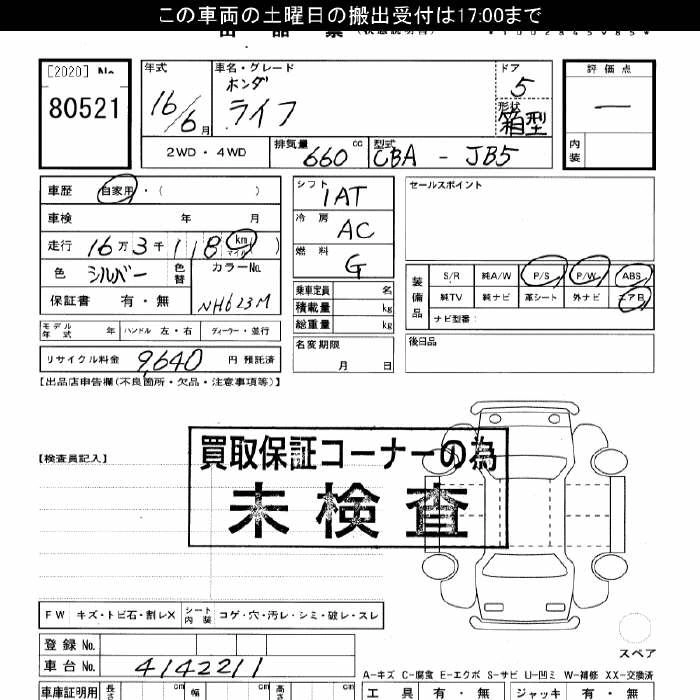 この車両の土曜日の搬出受付は17:00まで
[2020] No
80521
年式
16/6月
車名・グレード
ホンダ
ライフ
ドア
5
形状
箱型
評価点
—
内装
2WD・4WD
排気量
660 cc
型式
CBA - JB5
車歴 自家用・( )
車検 年 月
走行 16万3千118 km マイル )
色 シルバー 色替
カラーNo.
NH623M
保証書 有・無
シフト
IAT
冷房
AC
燃料
G
乗車定員 名
積載量 kg
総重量 kg
セールスポイント
装備品
S/R 純A/W P/S P/W ABS
純TV 純ナビ 革シート 外ナビ エアB
ナビ型番:
モデル年式 年 ハンドル 左・右 ディーラー・並行
リサイクル料金 9,640 円 預託済
名変期限
月 日
後日品
【出品店申告欄(不良箇所・欠品・注意事項等)】
【検査員記入】
買取保証コーナーの為
未検査
FW キズ・トビ石・割レX シート内装 コゲ・穴・汚レ・シミ・破レ・スレ
登録No.
車台No. 4142211
スペア
A-キズ C-腐食 E-エクボ S-サビ U-凹ミ W-補修 XX-交換済
車庫証明用 長さ cm 幅 cm 高さ cm
工具 有・無 ジャッキ 有・無